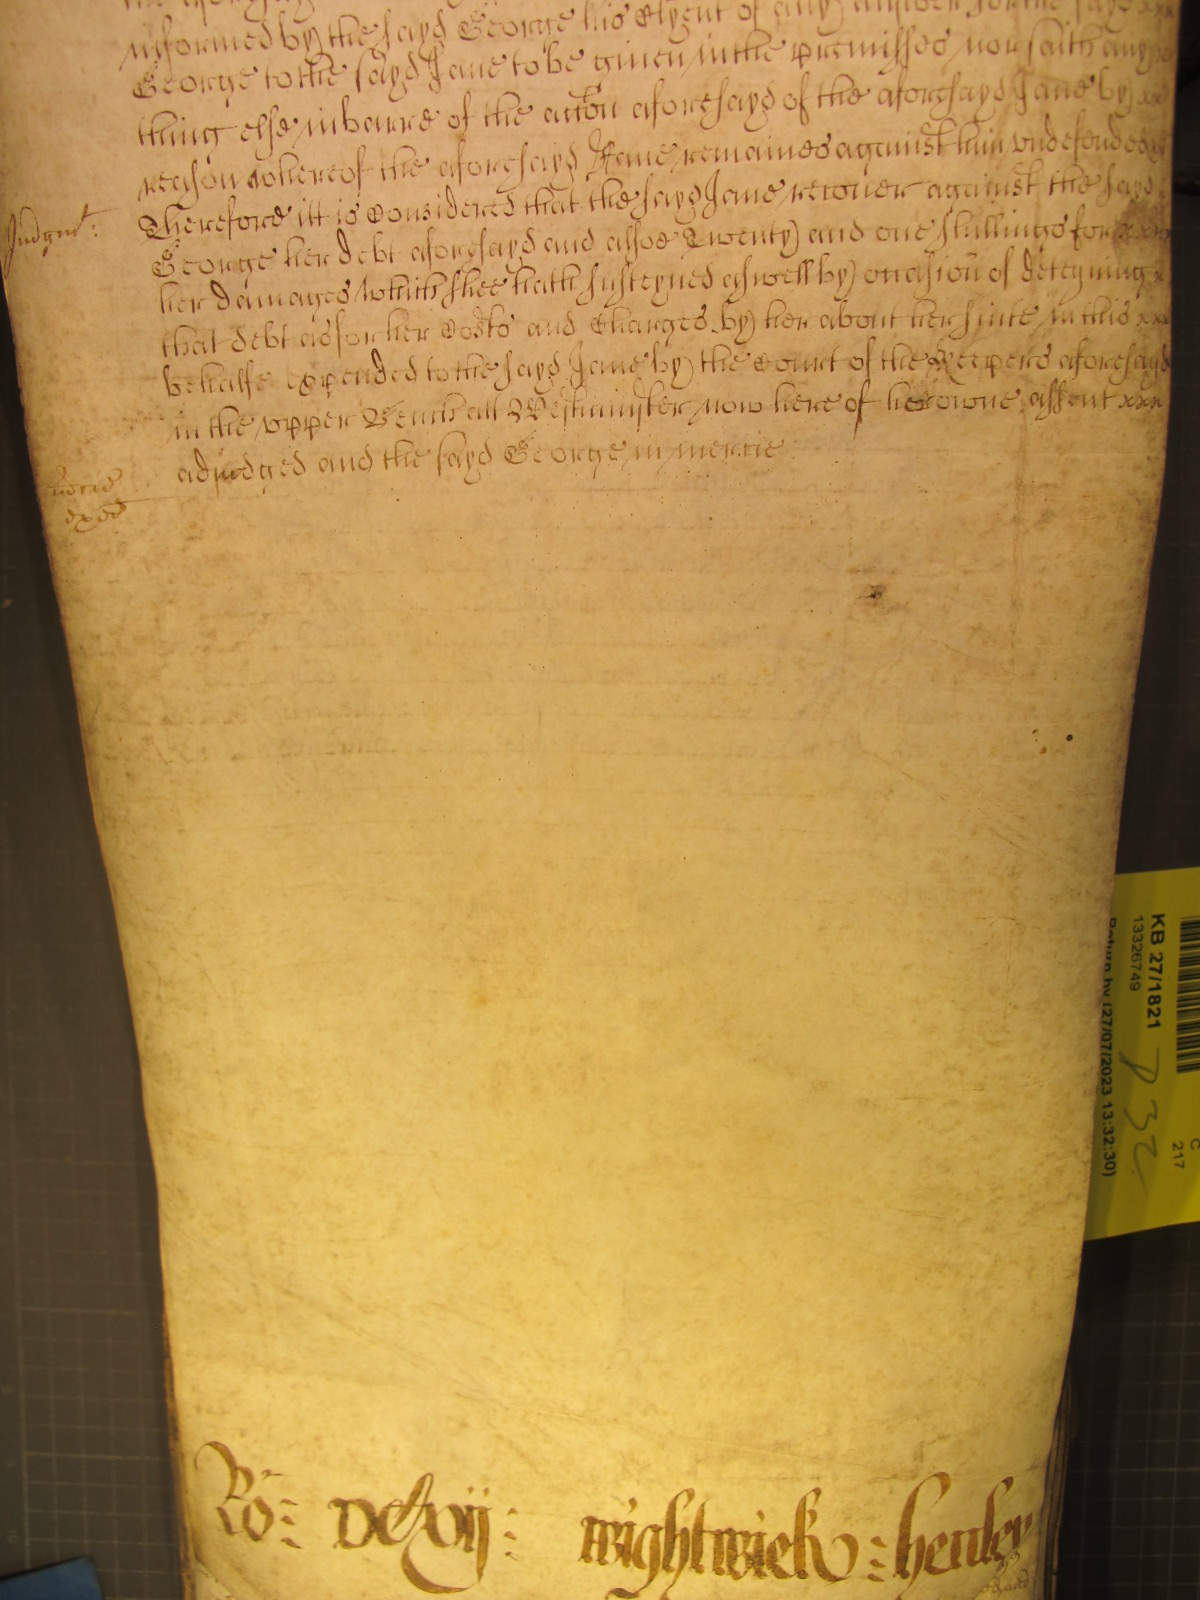 informed by the sayd George his Clyent of any answer for the sayd
George to the sayd Jane to be given in the premisses nor saith any
thing else in barre of the accon aforesayd of the aforesayd Jane by xx
reason whereof the aforesayd Jane remaines against him undefended
Judgmt: Therefore itt is Considered that the sayd Jane recover against the sayd
George her debt aforesayd and alsoe Twenty and one shillings for xxx
her damages which shee hath susteyned aswell by occasion of deteyning
that debt as for her Costs and Charges by her about her suite in this xxx
behalfe expended to the sayd Jane by the Court of the Keepers aforesayd
in the upper Bench att Westminster now here of her owne assent xxx
adjudged and the sayd George in mercie
Ro: DClxvij: Wightwick: henley
KB 27/1821
13326749
Return by (27/07/2023 13:32:30)
P 32
C
217